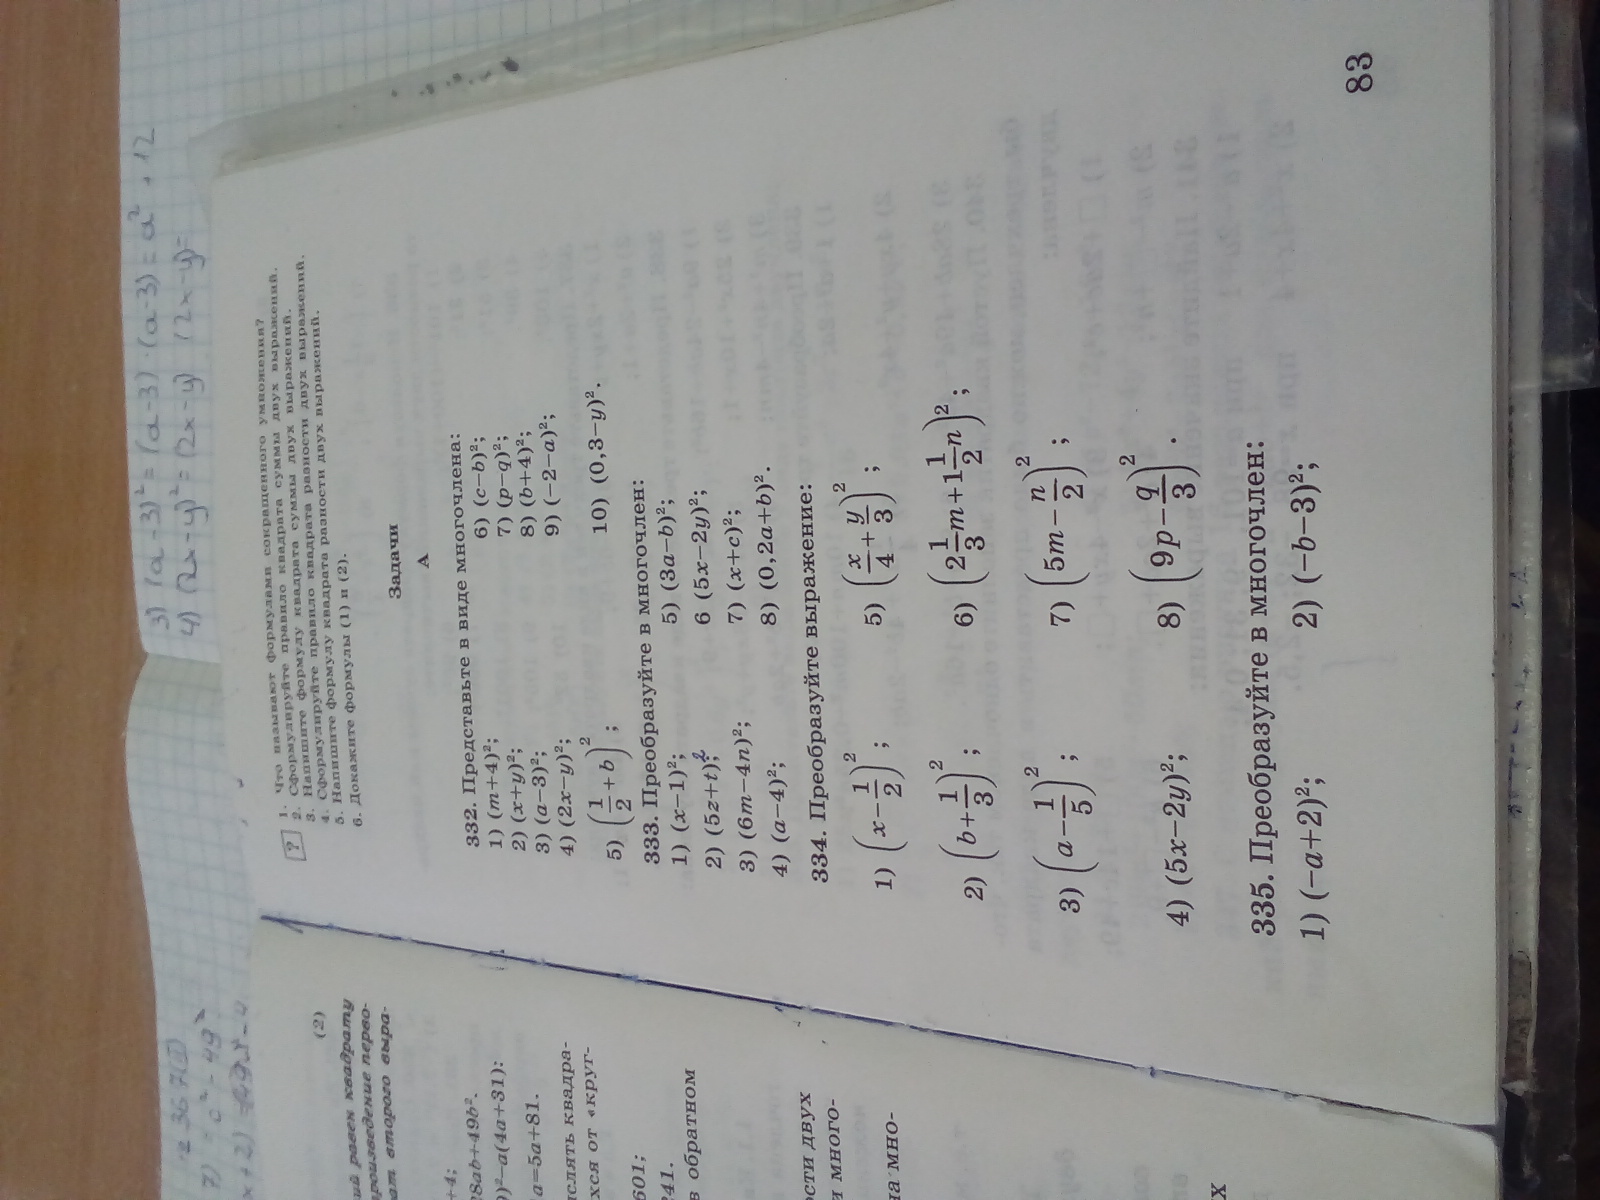 3) (a-3)² = (a-3)·(a-3) = a² + 12
4) (2x-y)² = (2x-y) (2x-y) =
? 1. Что называют формулами сокращенного умножения?
2. Сформулируйте правило квадрата суммы двух выражений.
3. Напишите формулу квадрата суммы двух выражений.
4. Сформулируйте правило квадрата разности двух выражений.
5. Напишите формулу квадрата разности двух выражений.
6. Докажите формулы (1) и (2).
Задачи
А
332. Представьте в виде многочлена:
1) (m+4)²; 6) (c−b)²;
2) (x+y)²; 7) (p−q)²;
3) (a−3)²; 8) (b+4)²;
4) (2x−y)²; 9) (−2−a)²;
5) (1/2 + b)²; 10) (0,3−y)².
333. Преобразуйте в многочлен:
1) (x−1)²; 5) (3a−b)²;
2) (5z+t);² 6 (5x−2y)²;
3) (6m−4n)²; 7) (x+c)²;
4) (a−4)²; 8) (0,2a+b)².
334. Преобразуйте выражение:
1) (x−1/2)²; 5) (x/4+y/3)²;
2) (b+1/3)²; 6) (2 1/3 m+1 1/2 n)²;
3) (a−1/5)²; 7) (5m−n/2)²;
4) (5x−2y)²; 8) (9p−q/3)².
335. Преобразуйте в многочлен:
1) (−a+2)²; 2) (−b−3)²;
83
7) = c² - 49²
(2)
равен квадрату
произведение перво-
второго выра-
+4;
28ab+49b².
)²−a(4a+31):
a=5a+81.
ислять квадра-
хся от «круг-
601;
241.
в обратном
ости двух
и много-
на мно-
х